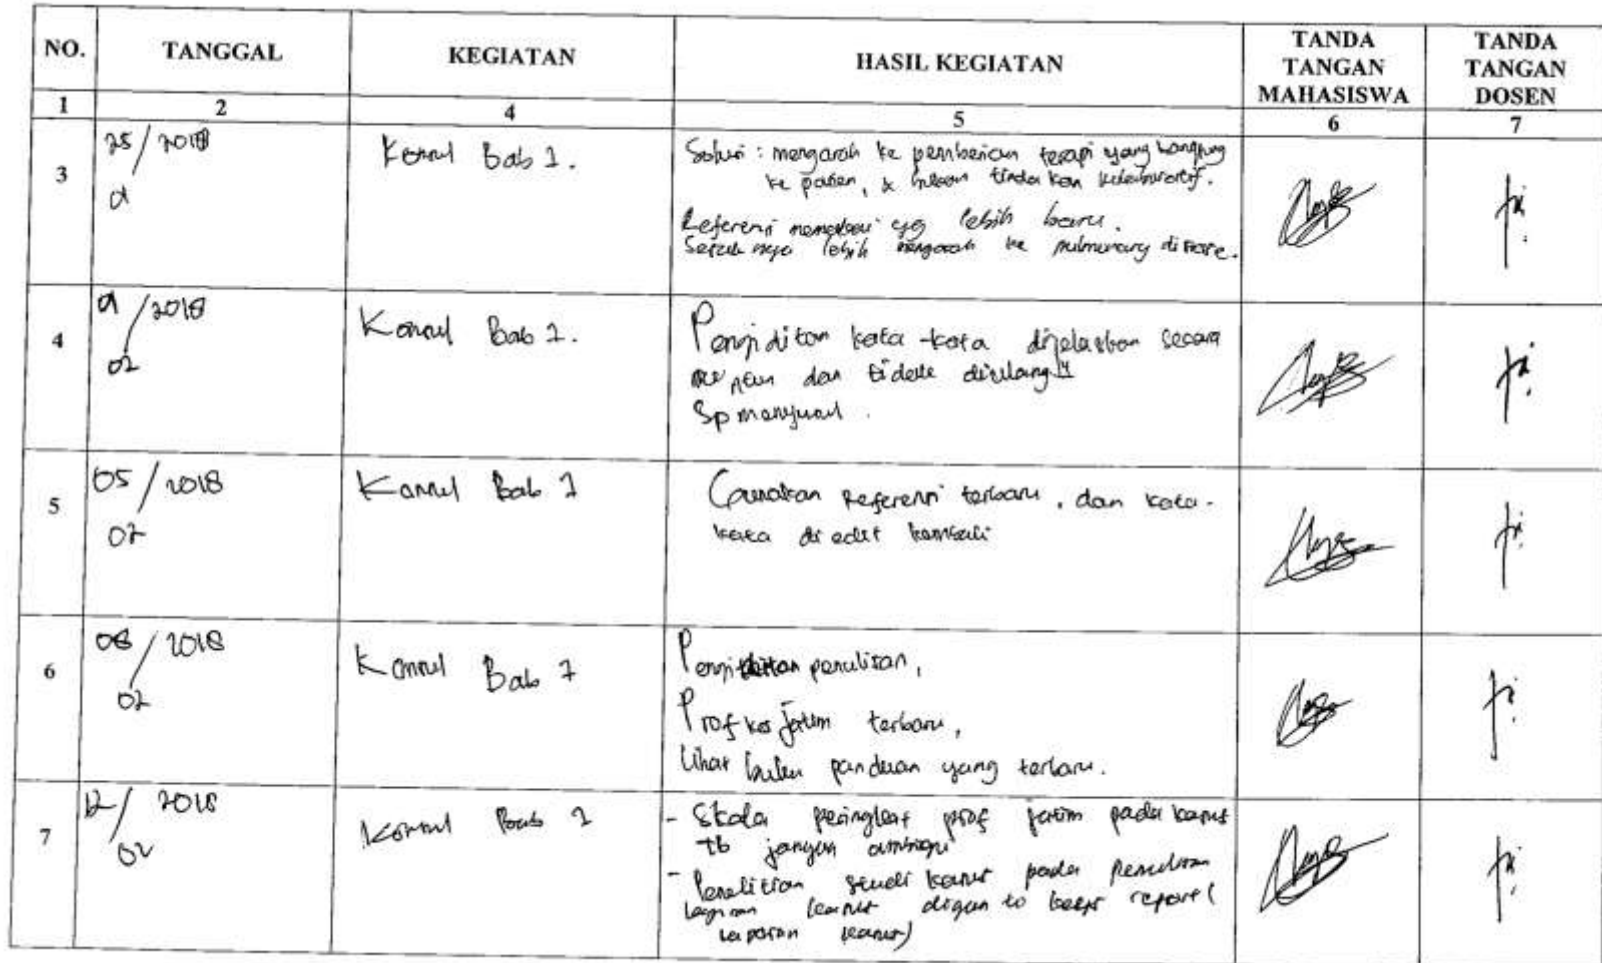 NO. TANGGAL KEGIATAN HASIL KEGIATAN TANDA TANGAN MAHASISWA TANDA TANGAN DOSEN
1 2 4 5 6 7
3 25/2018 Konsul Bab 1. Solusi : mengarah ke pemberian terapi yang langsung
ke pasien, & bukan tindakan kolaboratif.
Referensi yg lebih baru.
lebih mengarah ke pulmonary disease.
4 2018 Konsul Bab 1. kata-kata dijelaskan secara
02 dan tidak diulang"
5 05/2018 Konsul Bab 1 Gunakan Referensi terbaru, dan kata-
02 kata di edit kembali
6 08/2018 Konsul Bab 1 penulisan,
02 Prof kes jatim terbaru,
Lihat buku panduan yang terbaru.
7 12/2018 Konsul Bab 1 - Skala peringkat prof jatim pada kasus
02 tb jangan ambigu
- Penelitian studi kasus pada penulisan
kasus report (
laporan kasus)